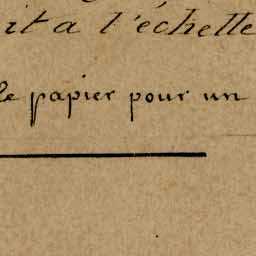 it a l'échelle
le papier pour un